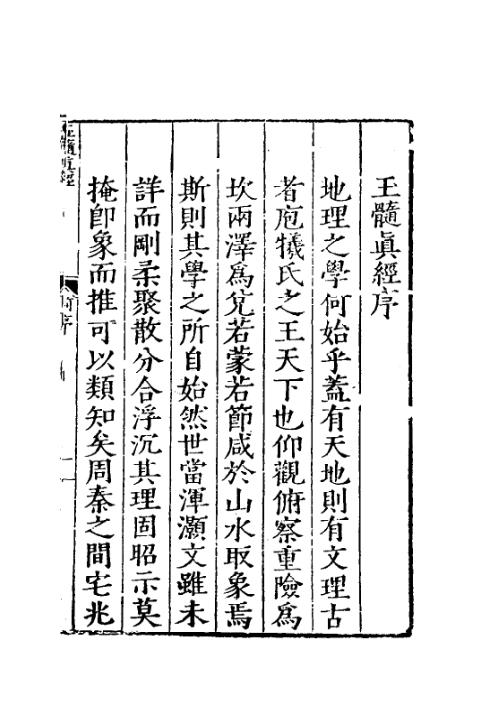 玉髓眞經序
地理之學何始乎蓋有天地則有文理古
者庖犧氏之王天下也仰觀俯察重險爲
坎兩澤爲兌若蒙若節咸於山水取象焉
斯則其學之所自始然世當渾灝文雖未
詳而剛柔聚散分合浮沉其理固昭示莫
掩卽象而推可以類知矣周秦之間宅兆
玉髓眞經
序